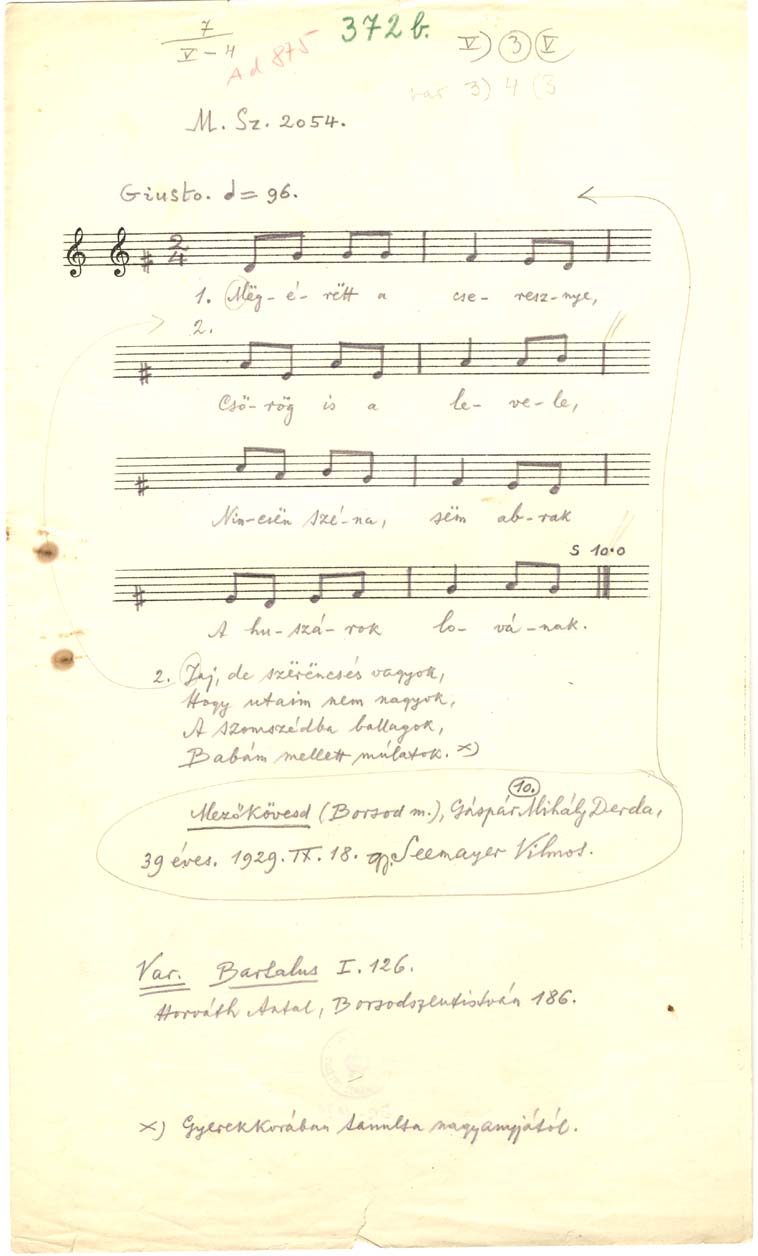 7
V - 4
Ad 875
372 b.
V) 3 V
var 3) 4 (3
M. Sz. 2054.
Giusto. d = 96.
2
4
1. Mëg-é-rëtt a cse-resz-nye,
2.
Csö-rög is a le-ve-le,
Nin-csën szé-na, sëm ab-rak
S 10.0
A hu-szá-rok lo-vá-nak.
2. Jaj, de szërëncsés vagyok,
Hogy utaim nem nagyok,
A szomszédba ballagok,
Babám mellett múlatok. x)
10.
Mezőkövesd (Borsod m.), Gáspár Mihály Derda,
39 éves. 1929. IX. 18. gy. Seemayer Vilmos.
Var. Bartalus I. 126.
Horváth Antal, Borsodszentistván 186.
x) Gyerekkorában tanulta nagyanyjától.